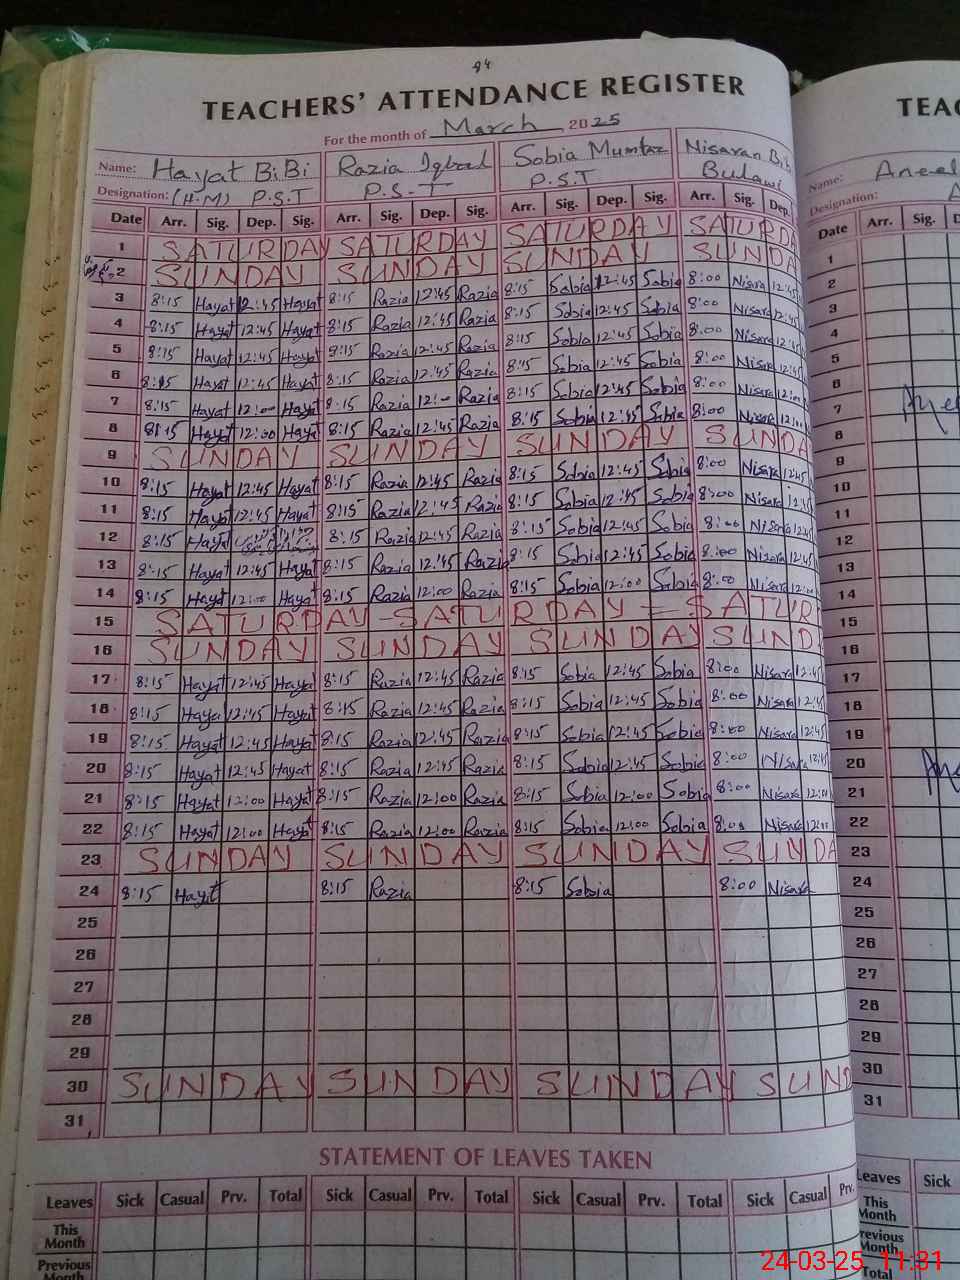 94
TEACHERS' ATTENDANCE REGISTER
For the month of March 2025
Name: Hayat BiBi Razia Iqbal Sobia Mumtaz Nisaran Bibi
Designation: (H.M) P.S.T P.S.T P.S.T
Date Arr. Sig. Dep. Sig. Arr. Sig. Dep. Sig. Arr. Sig. Dep. Sig. Arr. Sig. Dep.
1 SATURDAY SATURDAY SATURDAY SATURDA
2 SUNDAY SUNDAY SUNDAY SUNDA
3 8:15 Hayat 12:45 Hayat 8:15 Razia 12:45 Razia 8:15 Sobia 12:45 Sobia 8:00 Nisara 12:45
4 8:15 Hayat 12:45 Hayat 8:15 Razia 12:45 Razia 8:15 Sobia 12:45 Sobia 8:00 Nisara 12:45
5 8:15 Hayat 12:45 Hayat 8:15 Razia 12:45 Razia 8:15 Sobia 12:45 Sobia 8:00 Nisara 12:45
6 8:15 Hayat 12:45 Hayat 8:15 Razia 12:45 Razia 8:15 Sobia 12:45 Sobia 8:00 Nisara 12:45
7 8:15 Hayat 12:00 Hayat 8:15 Razia 12:00 Razia 8:15 Sobia 12:45 Sobia 8:00 Nisara 12:00
8 8:15 Hayat 12:00 Hayat 8:15 Razia 12:45 Razia 8:15 Sobia 12:45 Sobia 8:00 Nisara 12:45
9 SUNDAY SUNDAY SUNDAY SUNDA
10 8:15 Hayat 12:45 Hayat 8:15 Razia 12:45 Razia 8:15 Sobia 12:45 Sobia 8:00 Nisara 12:45
11 8:15 Hayat 12:45 Hayat 8:15 Razia 12:45 Razia 8:15 Sobia 12:45 Sobia 8:00 Nisara 12:45
12 8:15 Hayat 8:15 Razia 12:45 Razia 8:15 Sobia 12:45 Sobia 8:00 Nisara 12:45
13 8:15 Hayat 12:45 Hayat 8:15 Razia 12:45 Razia 8:15 Sobia 12:45 Sobia 8:00 Nisara 12:45
14 8:15 Hayat 12:00 Hayat 8:15 Razia 12:00 Razia 8:15 Sobia 12:00 Sobia 8:00 Nisara 12:00
15 SATURDAY - SATURDAY = SATUR
16 SUNDAY SUNDAY SUNDAY SUND
17 8:15 Hayat 12:45 Hayat 8:15 Razia 12:45 Razia 8:15 Sobia 12:45 Sobia 8:00 Nisara 12:45
18 8:15 Haya 12:45 Hayat 8:15 Razia 12:45 Razia 8:15 Sobia 12:45 Sobia 8:00 Nisara 12:45
19 8:15 Hayat 12:45 Hayat 8:15 Razia 12:45 Razia 8:15 Sobia 12:45 Sobia 8:00 Nisara 12:45
20 8:15 Hayat 12:45 Hayat 8:15 Razia 12:45 Razia 8:15 Sobia 12:45 Sobia 8:00 Nisara 12:45
21 8:15 Hayat 12:00 Hayat 8:15 Razia 12:00 Razia 8:15 Sobia 12:00 Sobia 8:00 Nisara 12:00
22 8:15 Hayat 12:00 Hayat 8:15 Razia 12:00 Razia 8:15 Sobia 12:00 Sobia 8:00 Nisara 12:00
23 SUNDAY SUNDAY SUNDAY SUNDA
24 8:15 Hayat 8:15 Razia 8:15 Sobia 8:00 Nisara
25
26
27
28
29
30 SUNDAY SUNDAY SUNDAY SUND
31
STATEMENT OF LEAVES TAKEN
Leaves Sick Casual Prv. Total Sick Casual Prv. Total Sick Casual Prv. Total Sick Casual Prv.
This Month
Previous Month
TEAC
Name: Aneel
Designation: A
Date Arr. Sig. D
1
2
3
4
5
6
7
8
9
10
11
12
13
14
15
16
17
18
19
20
21
22
23
24
25
26
27
28
29
30
31
Leaves Sick
This Month
Previous Month
Total
24-03-25 11:31